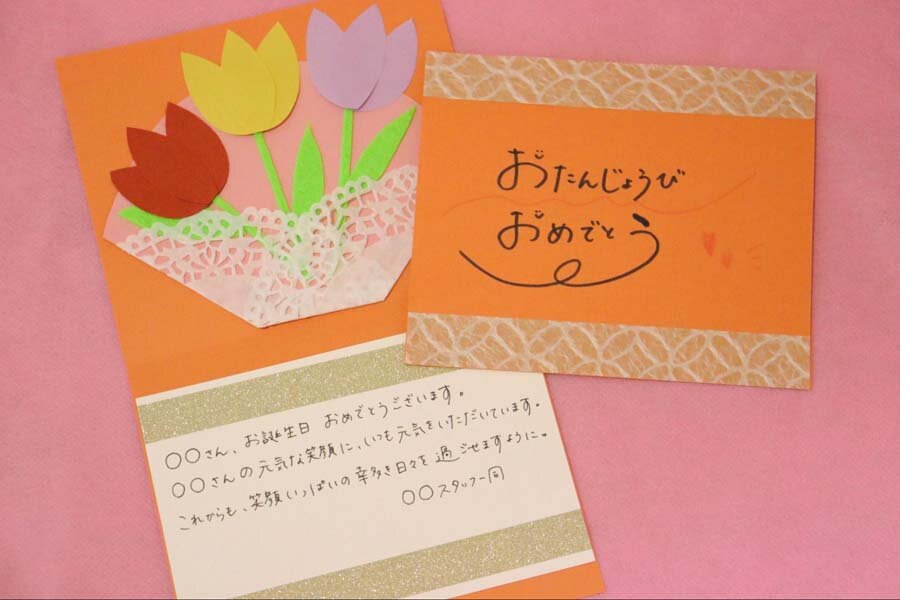 おたんじょうび
おめでとう
○○さん、お誕生日 おめでとうございます。
○○さんの元気な笑顔に、いつも元気をいただいています。
これからも、笑顔いっぱいの幸多き日々を過ごせますように。
○○スタッフ一同